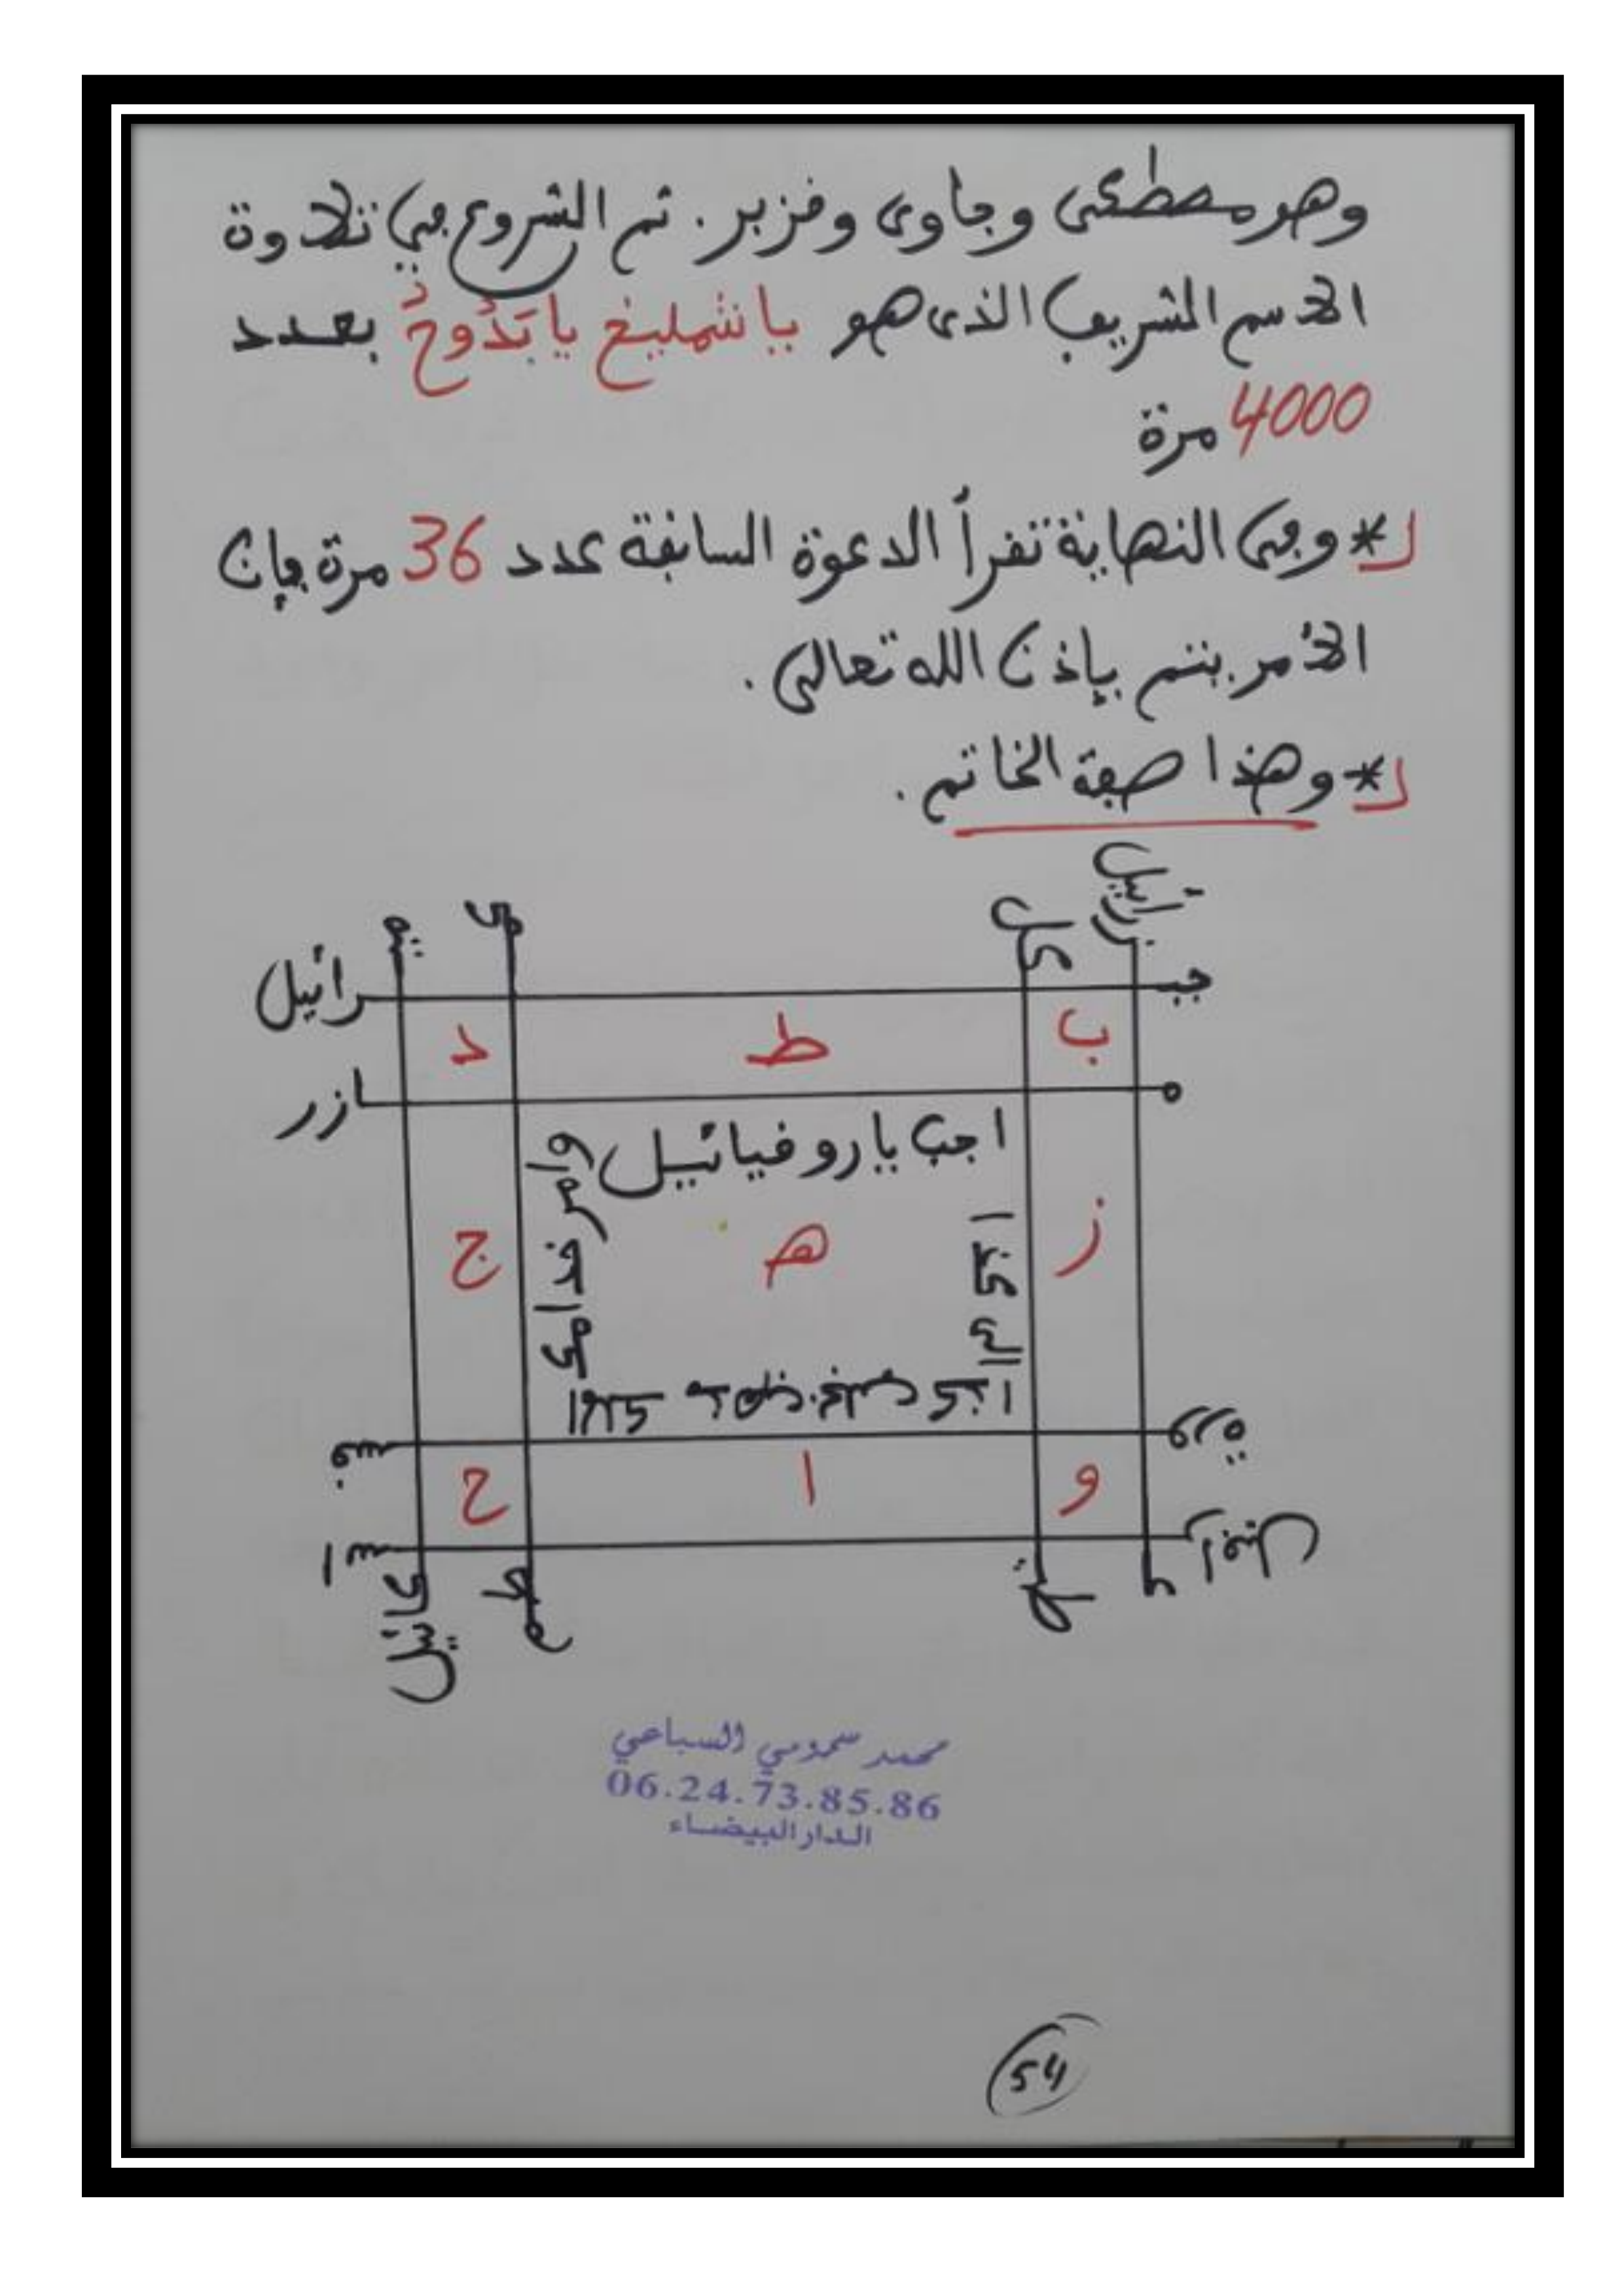 وهو مصطكى وجاوى وفزبر . ثم الشروع في تلاوة
الاسم الشريف الذي هو يا شمليخ يا بَدُّوحُ بعدد
4000 مرة
* وفي النهاية تقرأ الدعوة السابقة عدد 36 مرة فإن
الأمر يتم بإذن الله تعالى .
* وهذا صفة الخاتم .
جبـ رائيل
د ط ب
ه ازر
اجب يا روفيائيل
وامر خدامى
ج ه ز
الى
ح ا و
محمد سمومي السباعي
06.24.73.85.86
الدار البيضاء
54